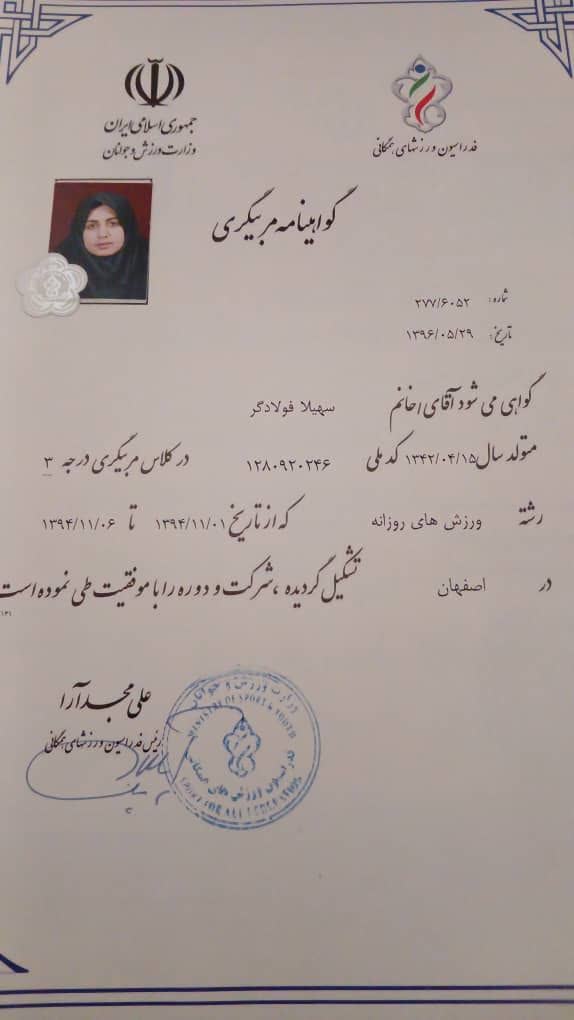 جمهوری اسلامی ایران
وزارت ورزش و جوانان
فدراسیون ورزشهای همگانی
گواهینامه مربیگری
شماره: ۲۷۷/۶۰۵۲
تاریخ: ۱۳۹۶/۰۵/۲۹
گواهی می شود آقای/خانم سهیلا فولادگر
متولد سال ۱۳۴۲/۰۴/۱۵ کد ملی ۱۲۸۰۹۲۰۲۴۶ در کلاس مربیگری درجه ۳
رشته ورزش های روزانه که از تاریخ ۱۳۹۴/۱۱/۰۱ تا ۱۳۹۴/۱۱/۰۶
در اصفهان تشکیل گردیده ، شرکت و دوره را با موفقیت طی نموده است
۱۳۱
علی مجدآرا
رئیس فدراسیون ورزشهای همگانی
وزارت ورزش و جوانان
MINISTRY OF SPORT & YOUTH
فدراسیون ورزش های همگانی
SPORT FOR ALL FEDERATIONS